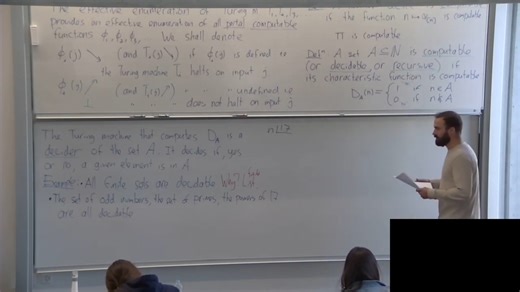 The effective enumeration of Turing m. T₁, T₂, T₃,
provides an effective enumeration of all partial computable
functions φ₁, φ₂, φ₃, . We shall denote
φᵢ(j)↘ (and Tᵢ(j)↘) if φᵢ(j) is defined
the Turing machine Tᵢ halts on input j
φᵢ(j)↗ (and Tᵢ(j)↗) " " undefined
⊥ " " does not halt on input j
if the function n↦ is computable
π is computable
Defⁿ A set A⊆ℕ is computable
(or decidable, or recursive) if
its characteristic function is computable
(n) = { 1 if n∈A
0 if n∉A
The Turing machine that computes is a
decider of the set A. It decides if, yes
or no, a given element is in A
n
Example • All finite sets are decidable Why?
• The set of odd numbers, the set of primes, the powers of 17
are all decidable